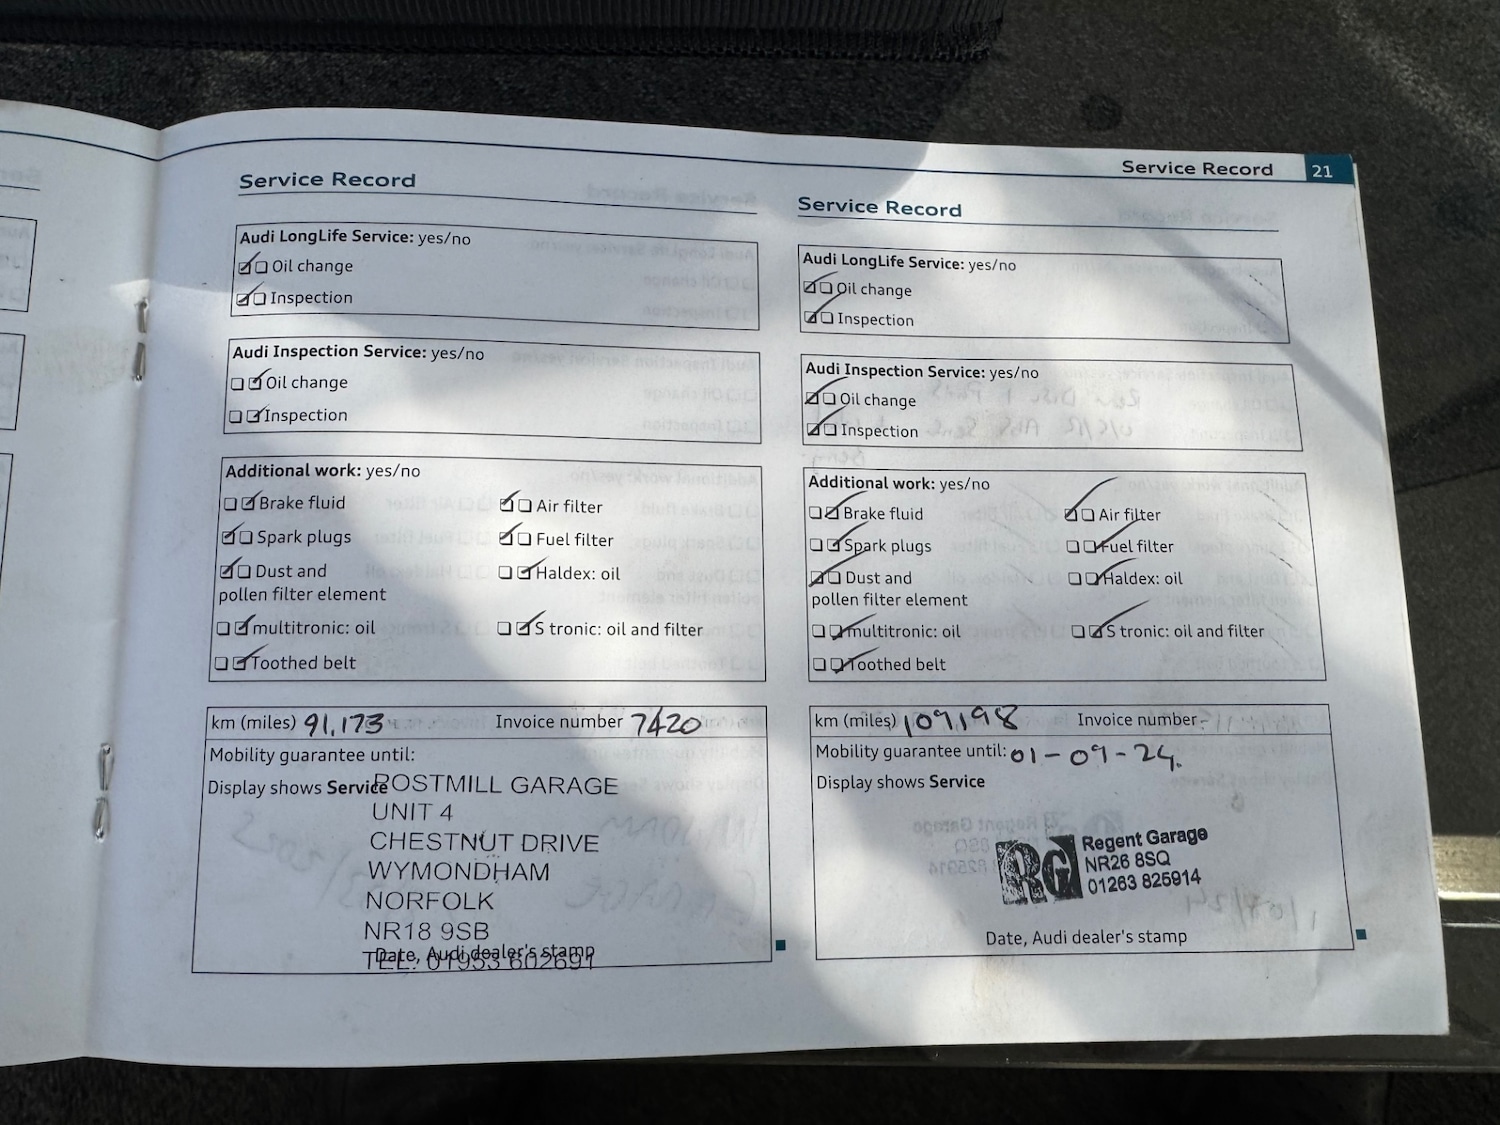 Service Record 21
Service Record
Audi LongLife Service: yes/no
Oil change
Inspection
Audi Inspection Service: yes/no
Oil change
Inspection
Additional work: yes/no
Brake fluid Air filter
Spark plugs Fuel filter
Dust and Haldex: oil
pollen filter element
multitronic: oil S tronic: oil and filter
Toothed belt
km (miles) 91,173 Invoice number 7420
Mobility guarantee until:
Display shows Service
POSTMILL GARAGE
UNIT 4
CHESTNUT DRIVE
WYMONDHAM
NORFOLK
NR18 9SB
Date, Audi dealer's stamp
TEL: 01953 602691
Service Record
Audi LongLife Service: yes/no
Oil change
Inspection
Audi Inspection Service: yes/no
Oil change
Inspection
Additional work: yes/no
Brake fluid Air filter
Spark plugs Fuel filter
Dust and Haldex: oil
pollen filter element
multitronic: oil S tronic: oil and filter
Toothed belt
km (miles) 109,198 Invoice number -
Mobility guarantee until: 01-09-24.
Display shows Service
RG
Regent Garage
NR26 8SQ
01263 825914
Date, Audi dealer's stamp